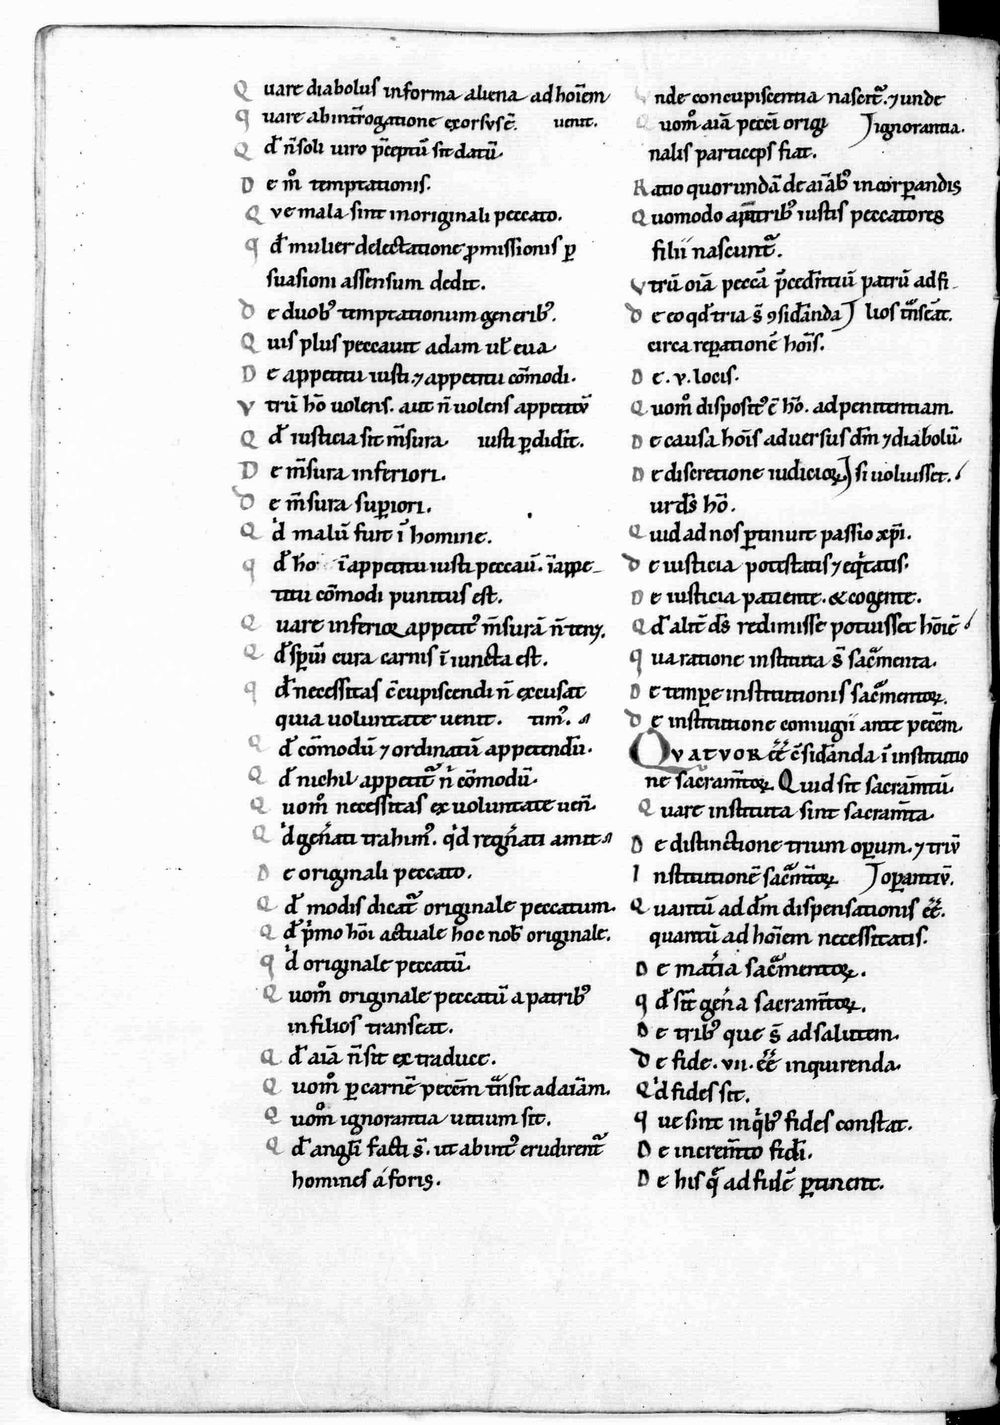 Quare diabolus in forma aliena ad hoīem
Quare ab int̄rogatione exorsus ē. uenit.
Qđ ñ soli uiro p̄ceptū sit datū.
De mͦ temptationis.
Que mala sint in originali peccato.
Qđ mulier delectatione ꝓmissionis ꝑ
suasioni assensum dedit.
De duobꝰ temptationum generibꝰ.
Quis plus peccauit adam uel̄ eua
De appetitu iusti ⁊ appetitu cōmodi.
Vtrū hō uolens. aut ñ uolens appetitū
Qđ iusticia sit m̄sura iusti ꝑdidit̄.
De m̄sura inferiori.
De m̄sura suꝑiori.
Qd malū fuit ī homine.
Qđ hō ī appetitu iusti peccauͥ. ī appe-
titu cōmodi punitus est.
Quare inferioꝝ appetitꝰ m̄surā ñ ten&.
Qđ sp̄ui cura carnis īiuncta est.
Qđ necessitas ꝯcupiscendi ñ excusat
quia uoluntate uenit. timꝰ.
Qđ cōmodū ⁊ ordinatū appetendū.
Qđ nichil appetitᷓ nͥ cōmodū.
Quomͦ necessitas ex uoluntate uen̄.
Qͥd gen̄ati trahimꝰ. qͥd regn̄ati amit
De originali peccato.
Qđ modis dicatᷓ originale peccatum.
Qđ pͥmo hōi actuale hoc nob̄ originale.
Qͥd originale peccatū.
Quomͦ originale peccatū a patribꝰ
in filios transeat.
Qđ aīā ñ sit ex traduce.
Quomͦ ꝑ carnē peccm̄ tᷓnsit ad aīam.
Quomͦ ignorantia uitium sit.
Qđ angl̄i facti s̄. ut ab intꝰ erudirentᷓ
homines a foris.
Vnde concupiscentia nascitᷓ. ⁊ unde
Quomͦ aīā pecc̄i origi ignorantia.
nalis particeps fiat.
Ratio quorundā de aīabꝰ incorꝑandis
Quomodo a patribꝰ iustis peccatores
filii nascuntᷓ.
Vtrū oīā peccā p̄cedn̄tiū patrū ad fi-
De eo qđ tria s̄ ꝯsid̄anda lios tᷓnseāt.
circa reꝑationē hōis.
De .v. locis.
Quomͦ dispositꝰ ē hō. ad penitentiam.
De causa hōis aduersus dm̄ ⁊ diabolū.
De discretione iudicioꝝ si uoluisset.
ur ds̄ hō.
Quid ad nos ꝑtinuit passio xp̄i.
De iusticia potestatis ⁊ eqͥtatis.
De iusticia patiente. & cogente.
Qđ alit̄ ds̄ redimisse potuisset hōiē
Qua ratione instituta s̄ sacᷓmenta.
De tempore institutionis sacᷓmentoꝝ.
De institutione coniugii ante peccm̄.
QVATVOR eē ꝯsid̄anda ī institutio
ne sacram̄toꝝ. Quid sit sacram̄tū.
Quare instituta sint sacram̄ta.
De distinctione trium oꝑum. ⁊ triū
Institutionē sacᷓmtōꝝ oꝑantiū.
Quantū ad dm̄ dispensationis eē.
quantū ad hoīem necessitatis.
De mat̄ia sacᷓmentoꝝ.
Qđ sīt gen̄a sacram̄toꝝ.
De tribꝰ que s̄ ad salutem.
De fide. vii. eē inquirenda.
Qͥd fides sit.
Que sint in qͥbꝰ fides constat.
De increm̄to fidi.
De his qᷓ ad fidē ꝑtinent.